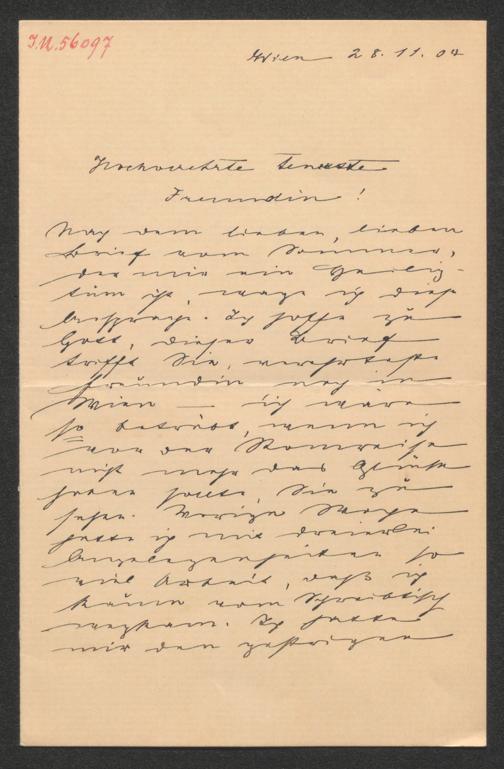 I.N. 56097
Wien 28.11.04
Hochverehrte teuerste
Freundin!
Nach dem lieben, lieben
Brief vom Sommer,
der mir ein Heilig-
tum ist, wage ich diese
Ansprache. Ich hoffe zu
Gott, dieser Brief
trifft Sie, verehrteste
Freundin noch in
Wien — ich wäre
so betrübt, wenn ich
vor der Romreise
nicht mehr das Glück
haben sollte, Sie zu
sehen. Vorige Woche
hatte ich mit dreierlei
Angelegenheiten so
viel Arbeit, daß ich
kaum vom Schreibtisch
wegkam. Ich hatte
mir den gestrigen